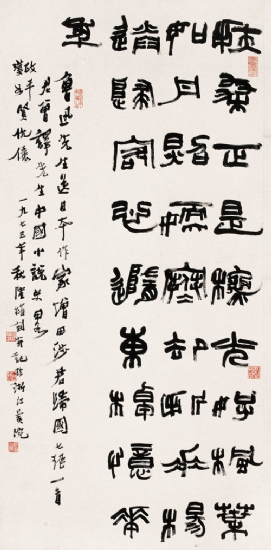 扶桑正是秋光好楓葉
如丹照嫩寒却折垂楊
送歸客心隨東棹憶華
年
魯迅先生送日本作家增田涉君歸國七絕一首
君曾譯先生中國小說史畧
賢伉儷
一九七五年秋陸維釗并記於浙江美院